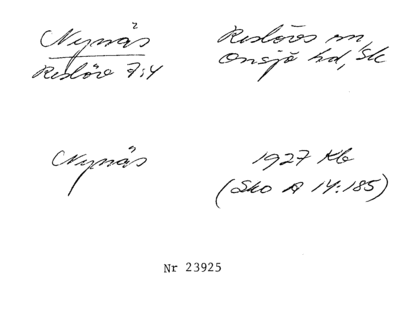 Nynäs 2
Reslöv 7:4
Reslövs sn,
Onsjö hd, Sk
Nynäs
1927 Kb
(Sko A 14:185)
Nr 23925